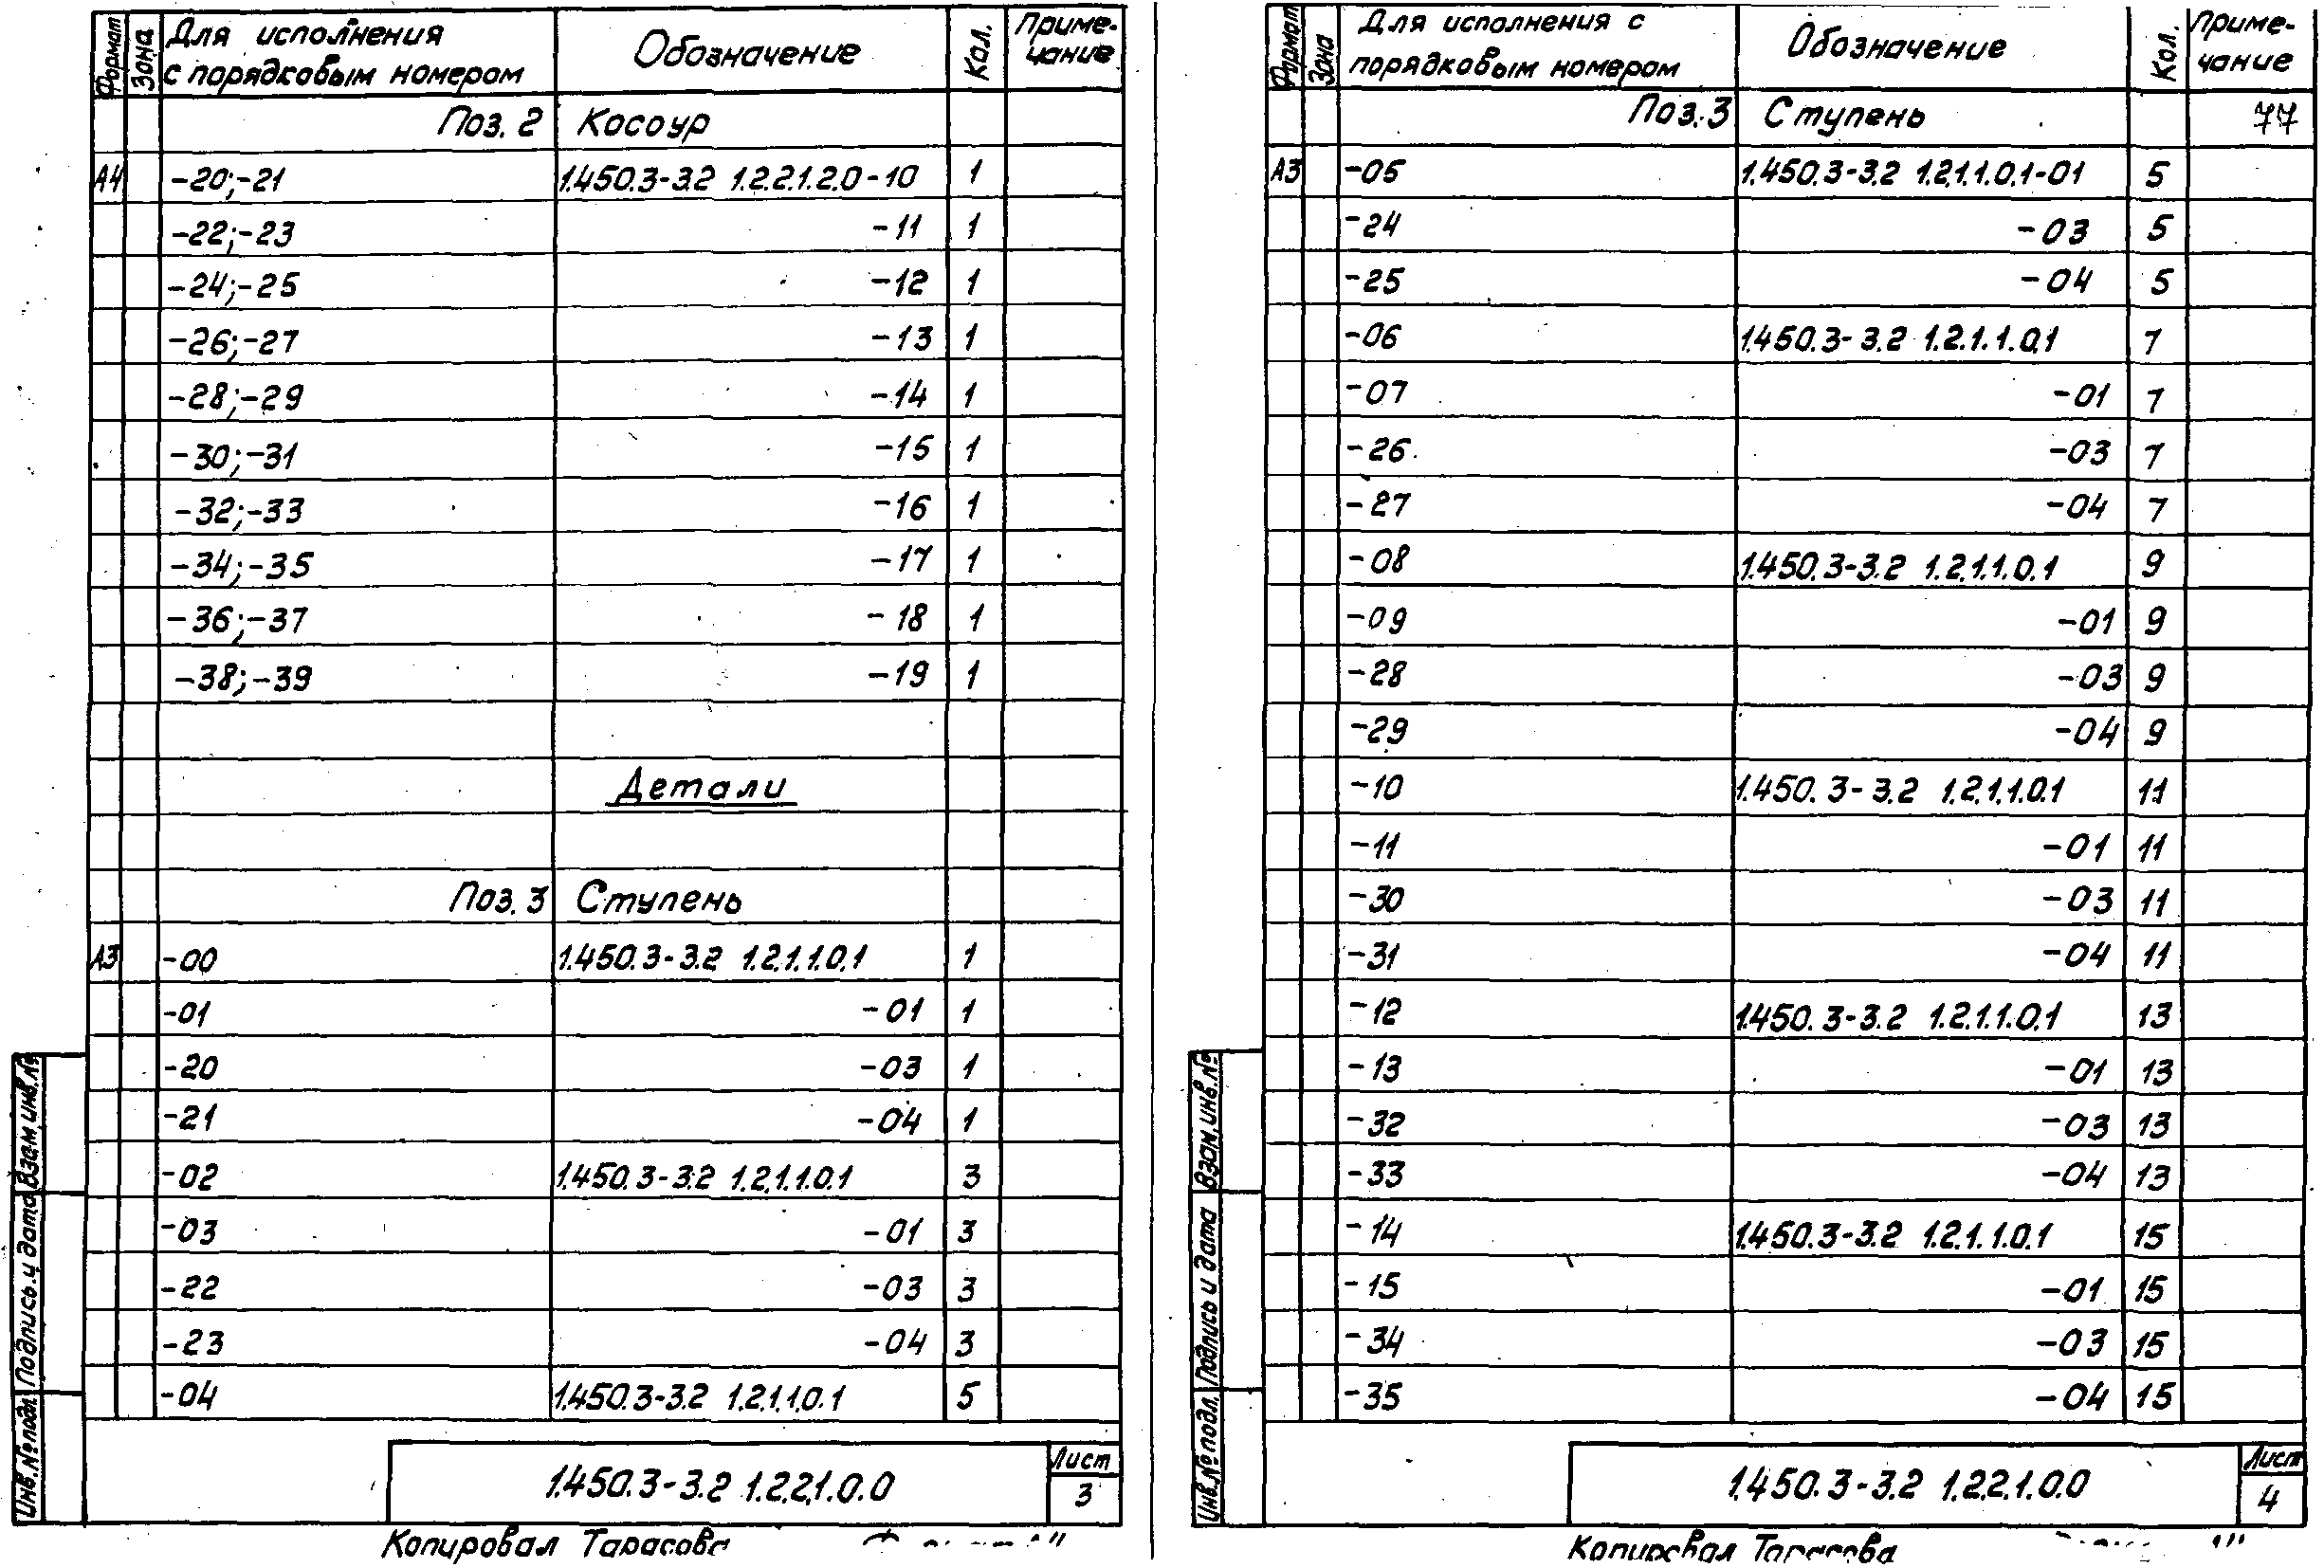 Формат Зона Для исполнения с порядковым номером Обозначение Кол. Приме-чание
Поз. 2 Косоур
А4 -20;-21 1.450.3-3.2 1.2.2.1.2.0-10 1
-22;-23 -11 1
-24;-25 -12 1
-26;-27 -13 1
-28;-29 -14 1
-30;-31 -15 1
-32;-33 -16 1
-34;-35 -17 1
-36;-37 -18 1
-38;-39 -19 1
Детали
Поз. 3 Ступень
А3 -00 1.450.3-3.2 1.2.1.1.0.1 1
-01 -01 1
-20 -03 1
-21 -04 1
-02 1.450.3-3.2 1.2.1.1.0.1 3
-03 -01 3
-22 -03 3
-23 -04 3
-04 1.450.3-3.2 1.2.1.1.0.1 5
Инв.№подл. Подпись и дата Взам.инв.№
1.450.3-3.2 1.2.2.1.0.0
Лист
3
Копировал Тарасова
Формат Зона Для исполнения с порядковым номером Обозначение Кол. Приме-чание
Поз. 3 Ступень 77
А3 -05 1.450.3-3.2 1.2.1.1.0.1-01 5
-24 -03 5
-25 -04 5
-06 1.450.3-3.2 1.2.1.1.0.1 7
-07 -01 7
-26 -03 7
-27 -04 7
-08 1.450.3-3.2 1.2.1.1.0.1 9
-09 -01 9
-28 -03 9
-29 -04 9
-10 1.450.3-3.2 1.2.1.1.0.1 11
-11 -01 11
-30 -03 11
-31 -04 11
-12 1.450.3-3.2 1.2.1.1.0.1 13
-13 -01 13
-32 -03 13
-33 -04 13
-14 1.450.3-3.2 1.2.1.1.0.1 15
-15 -01 15
-34 -03 15
-35 -04 15
Инв.№ подл. Подпись и дата Взам.инв.№
1.450.3-3.2 1.2.2.1.0.0
Лист
4
Копировал Тарасова